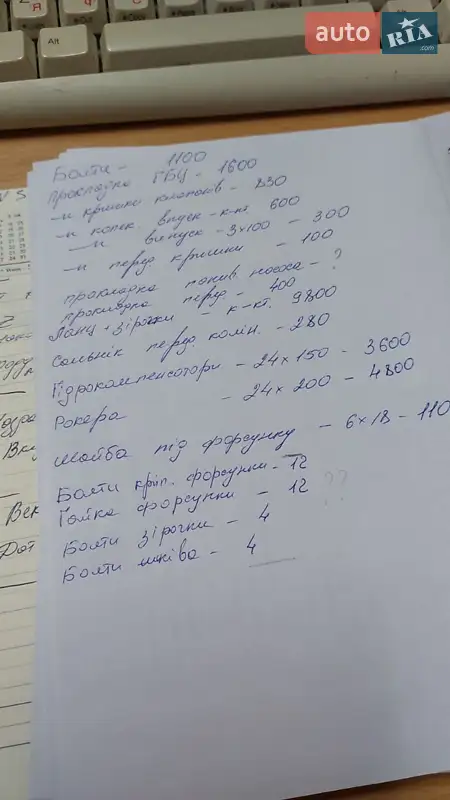 auto RIA .com
Alt
Болти - 1100
Прокладка ГБЦ - 1600
-и- кришки клапанів - 830
-и- колек. впуск - к-кт 600
-и- випуск - 3x100 - 300
-и- перед кришки - 100
прокладка палив насоса - ?
прокладка перед - 400
Ланц + зірочки - к-кт. 9800
Сальнік перед. колін. - 280
Гідрокомпенсатори - 24 x 150 - 3600
Рокера - 24 x 200 - 4800
Шайба під форсунку - 6 x 18 - 110
Болти кріп. форсунки - 12
Гайка форсунки - 12 ??
Болти зірочки - 4
Болти шківа - 4